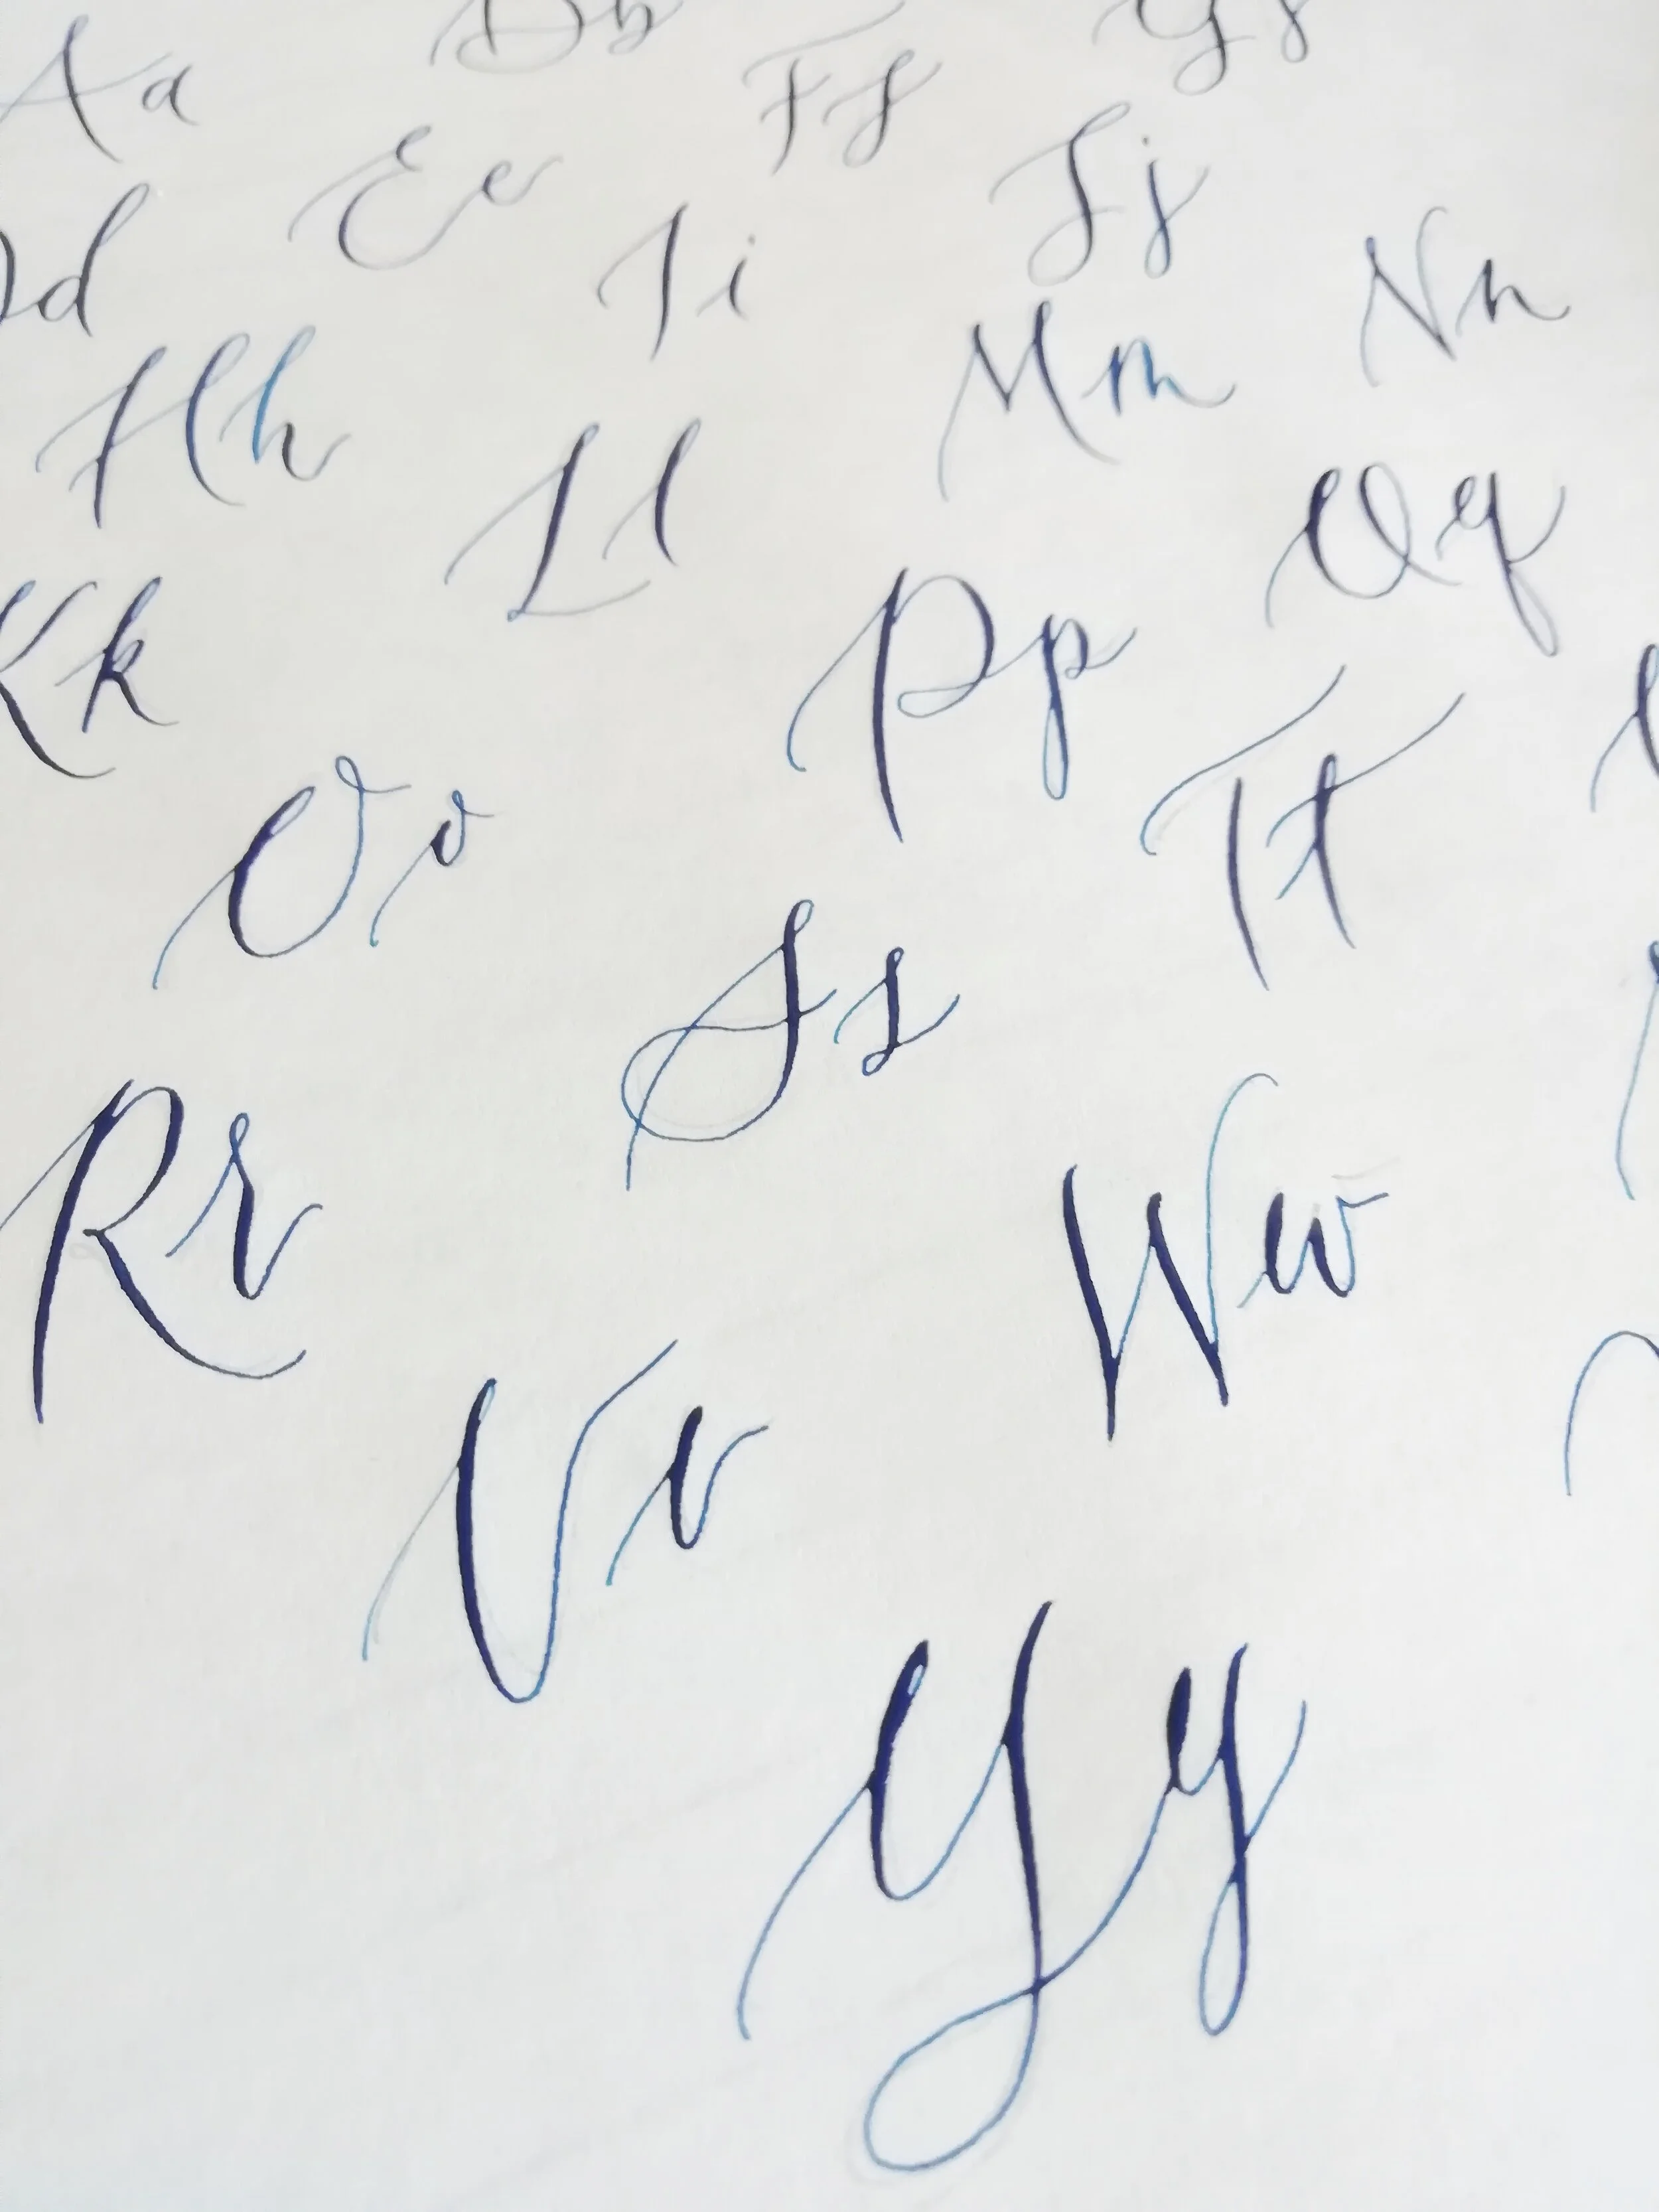 Aa Bb
Dd Ee Ff Gg
Hh Ii Jj
Kk Ll Mm Nn
Oo Pp Qq
Rr Ss Tt
Vv Ww
Yy